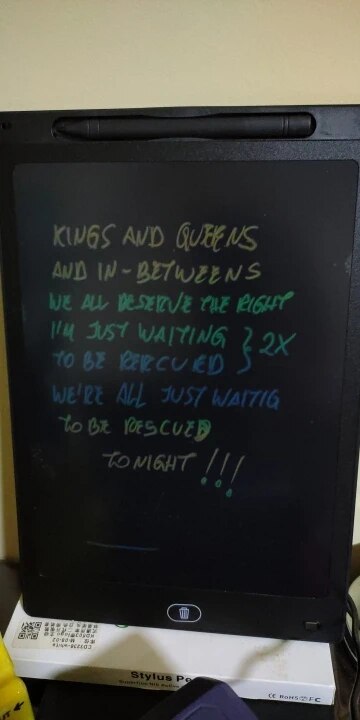 KINGS AND QUEENS
AND IN-BETWEENS
WE ALL DESERVE THE RIGHT
I'M JUST WAITING } 2X
TO BE RERCURED
WE'RE ALL JUST WAITIG
TO BE RESCUED
TONIGHT!!!
Stylus Pe
CE RoHS FC